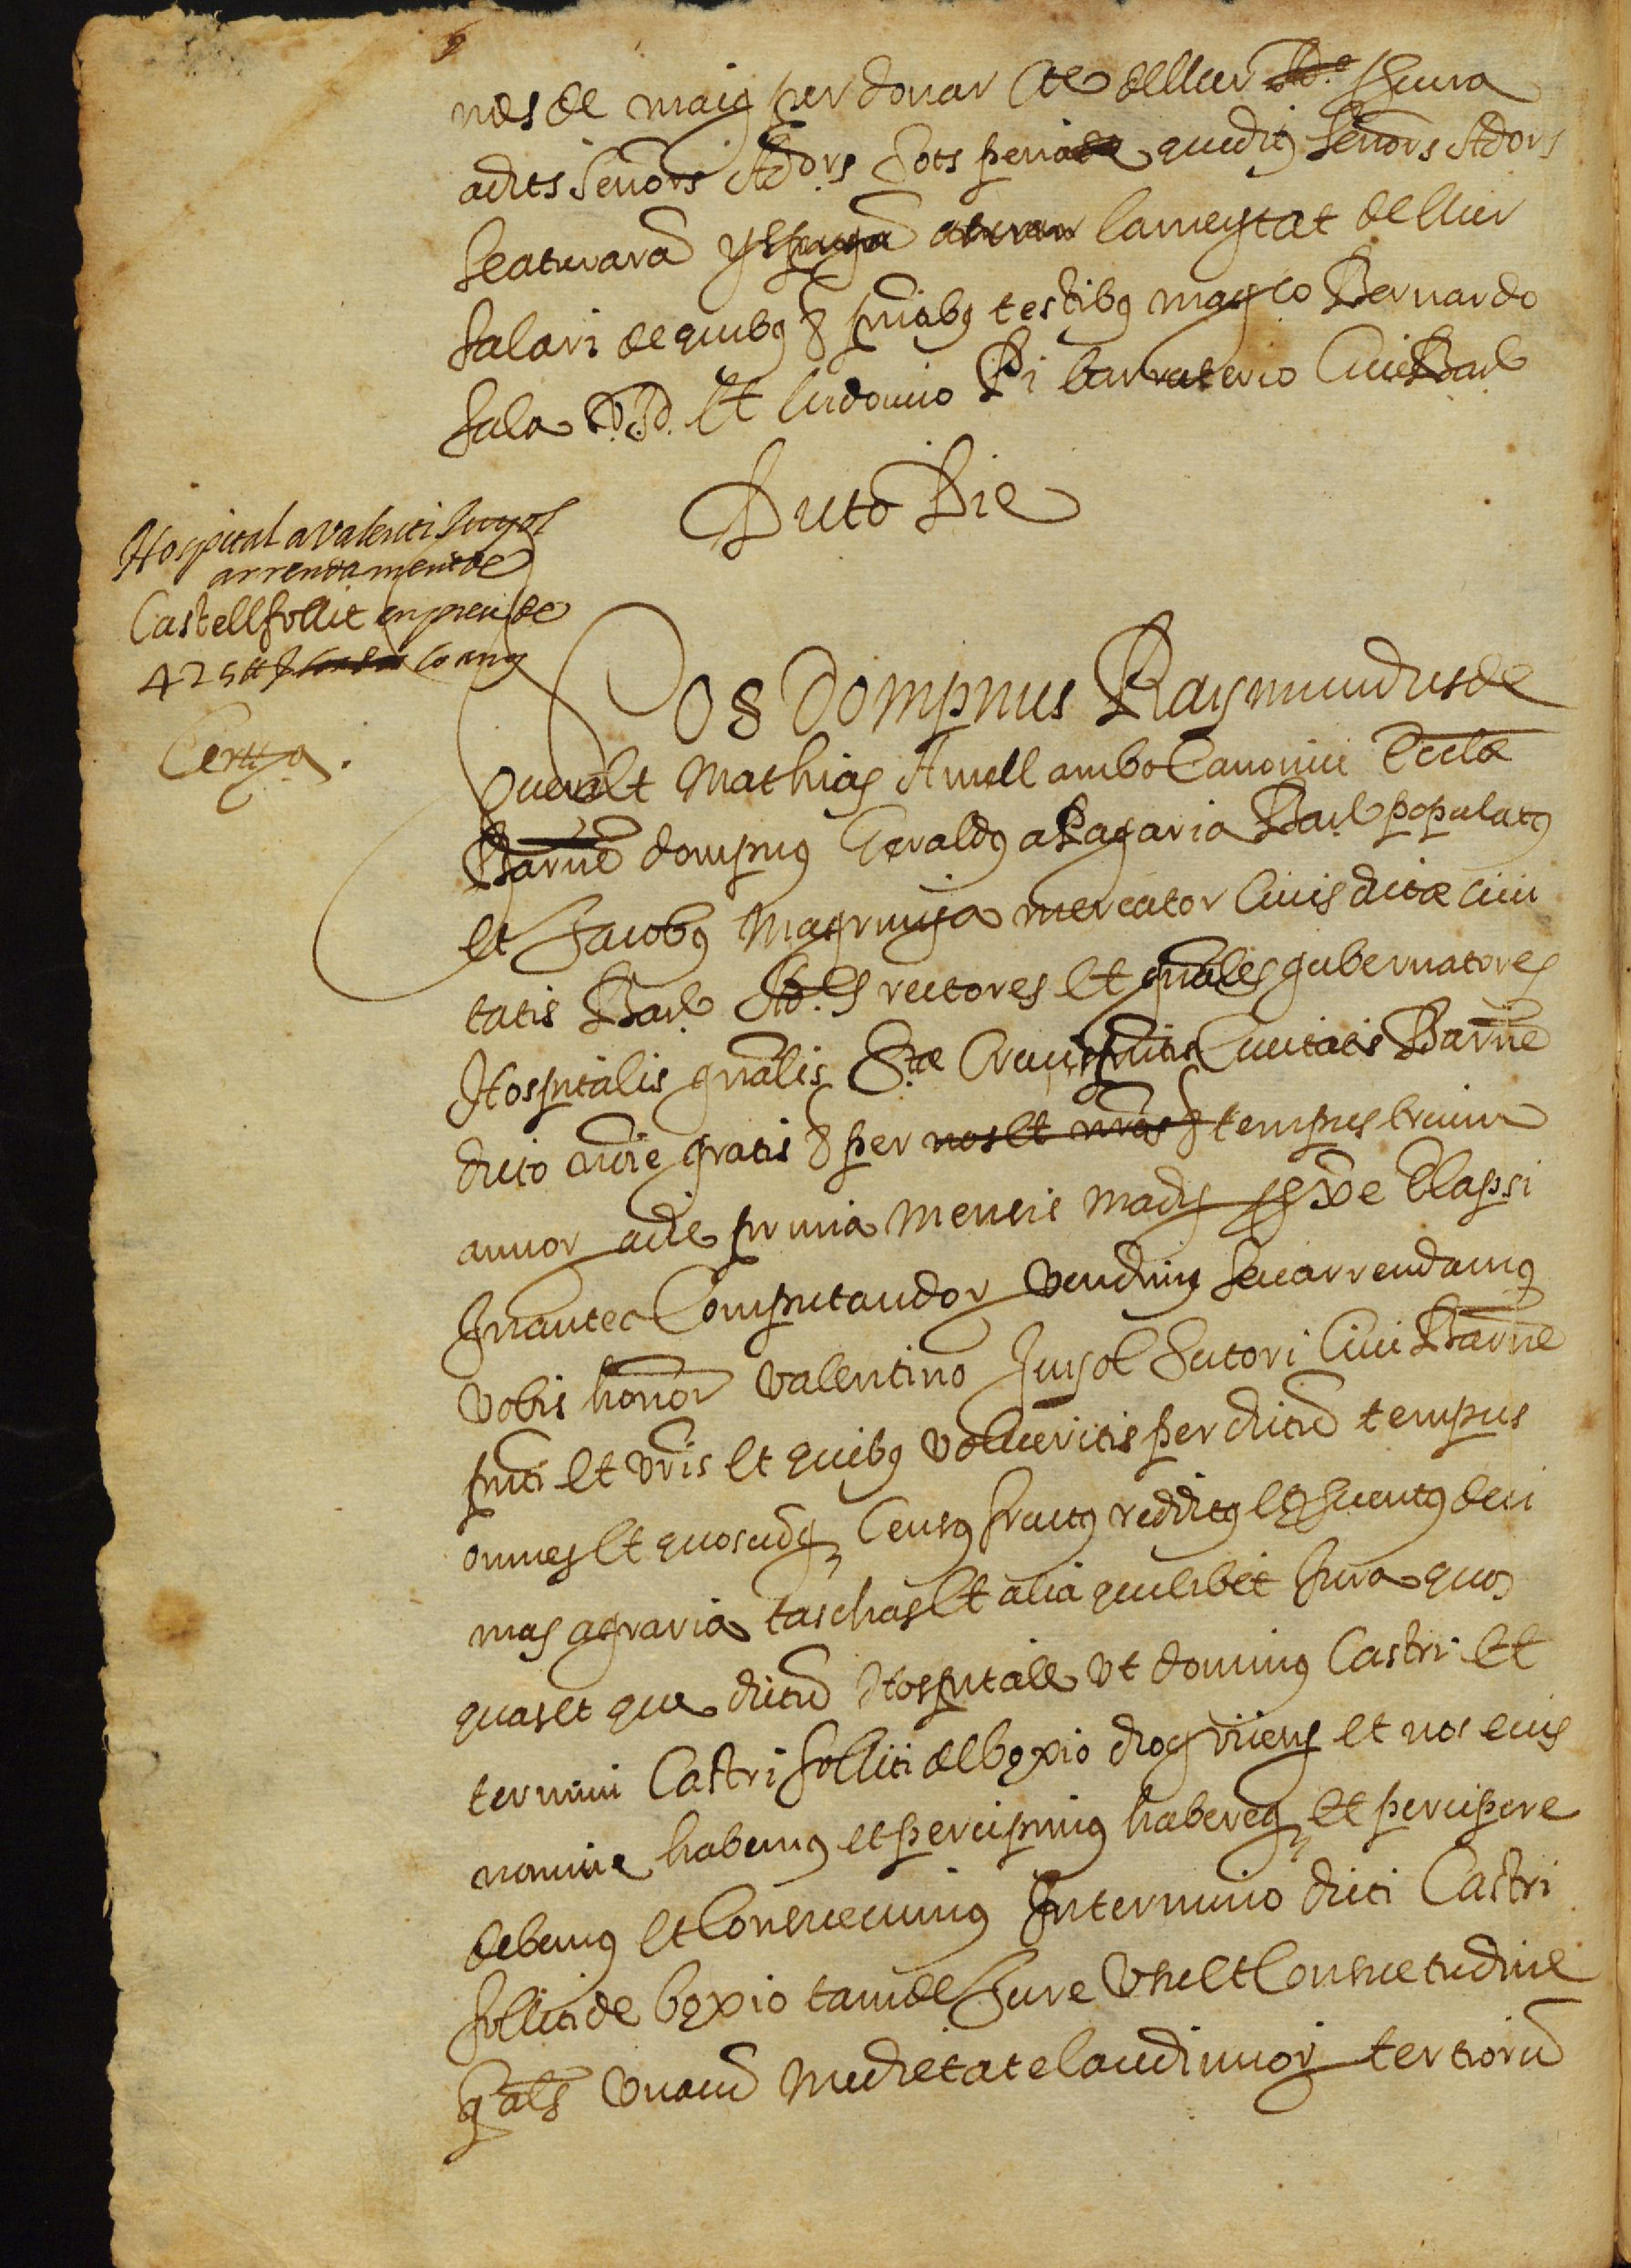 mes de maig per donar Co de llur Ad.e feura
adits Senors Adors sots pena que dits Senors Adors
se aturara la meytat de llur
salari de quibus & pntibus testibus magco Bernardo
Sala V.J.D. et Ludovico Pi barraterio Cive Barl
Dicto Die
Hospital a Valenti Jujol
arrendament de
Castellfollit en preu de
425 ℔ lo any
Certa.
Nos Dompnus Raymundus de
Queralt Mathias Amell ambo Canonici Eccle
Barne dompnus Geraldus a Pagaria Barl populatus
et Jacobus Magrinya mercator Civis dictæ civi
tatis Barl Ad.es rectores et gnales gubernatores
Hospitalis gnalis Stæ Crucis pntis Civitatis Barne
dicto noie gratis & per tempus trium
annor a die prima mensis Madii pxe Elapsi
In antea Computandor vendimus seu arrendamus
vobis honor Valentino Jujol Sutori Civi Barne
pnti et vris et quibus volueritis per dictu tempus
omnes et quoscuq Census fructus redditus et pventus deci
mas agraria taschas et alia quelibet Jura quos
quas et que dictu Hospitale ut dominus Castri et
termini Castri folliti del boxio diog vicens et nos eius
nomine habemus et percipimus habereq et percipere
debemus et Consuevimus In termino dicti Castri
folliti de boxio tam de Jure Usu et Consuetudine
q als una cu medietate laudimior tertioru